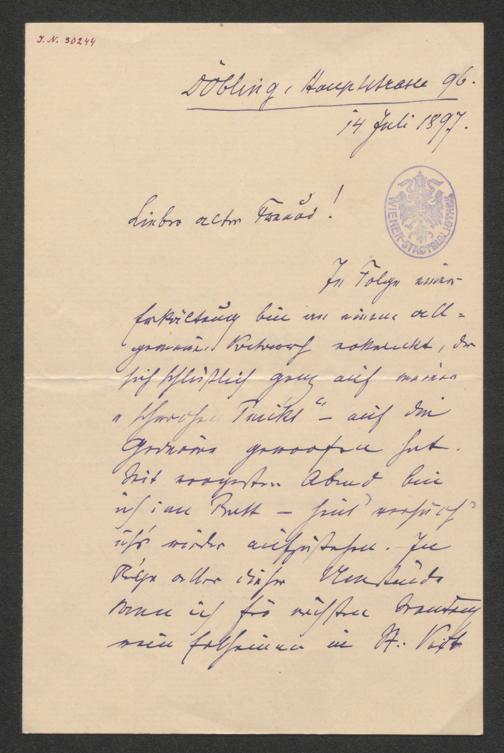 J. N. 30244
Döbling, Hauptstrasse 96.
14 Juli 1897.
WIENER-STADTBIBLIOTHEK
Lieber alter Freund!
In Folge einer
Erkältung bin an einem all-
gemeinen Katarrh erkrankt, der
sich schließlich ganz auf meinen
„schwachen Punkt“ – auf die
Gedärme geworfen hat.
Seit vorgestern Abend bin
ich im Bett – heut' versuch'
ich's wieder aufzustehen. In
Folge aller dieser Umstände
kann ich für nächsten Sonntag
mein Erscheinen in St. Veit